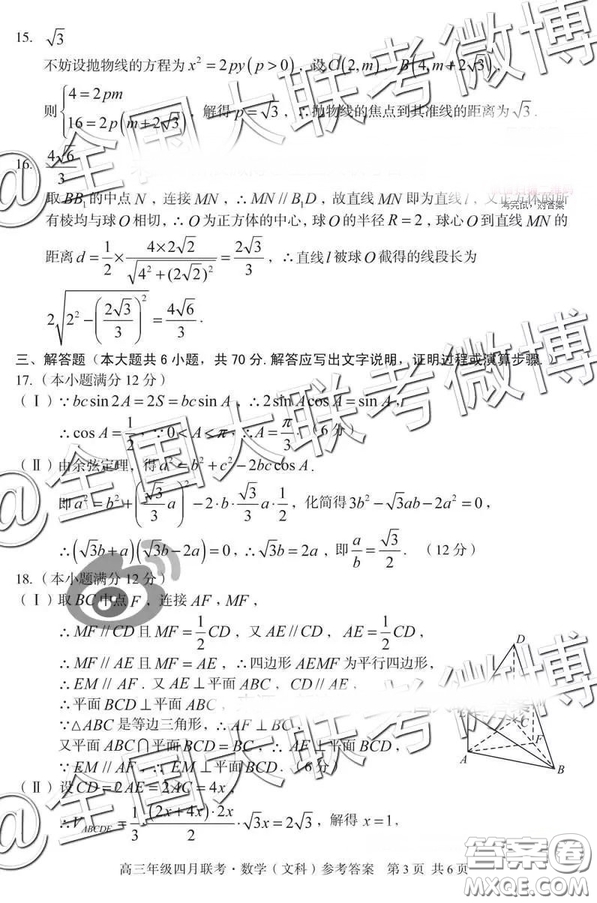 15. √3
不妨设抛物线的方程为 x²=2py(p>0)，设C(2,m)，B(4,m+2√3)，
则{4=2pm
16=2p(m+2√3)，解得p=√3，∴抛物线的焦点到其准线的距离为√3.
16. 4√6/3
取BB₁的中点N，连接MN，∴MN//B₁D，故直线MN即为直线l，又正方体的所
有棱均与球O相切，∴O为正方体的中心，球O的半径R=2，球心O到直线MN的
距离d=1/2×(4×2√2)/√(4²+(2√2)²)=2√3/3，∴直线l被球O截得的线段长为
2√(2²-(2√3/3)²)=4√6/3.
三、解答题（本大题共6小题，共70分.解答应写出文字说明，证明过程或演算步骤.）
17.（本小题满分12分）
（Ⅰ）∵bcsin2A=2S=bcsinA，∴2sinAcosA=sinA，
∴cosA=1/2∵0<A<π∴A=π/3.（6分）
（Ⅱ）由余弦定理，得a²=b²+c²-2bccosA.
即a²=b²+(√3/3a)²-2·b·√3/3a·1/2，化简得3b²-√3ab-2a²=0，
∴(√3b+a)(√3b-2a)=0，∴√3b=2a，即a/b=√3/2.（12分）
18.（本小题满分12分）
（Ⅰ）取BC中点F，连接AF，MF，
∴MF//CD且MF=1/2CD，又AE//CD，AE=1/2CD，
∴MF//AE且MF=AE，∴四边形AEMF为平行四边形，
∴EM//AF.又AE⊥平面ABC，CD//AE，
∴平面BCD⊥平面ABC，
∵△ABC是等边三角形，∴AF⊥BC，
又平面ABC∩平面BCD=BC，∴AF⊥平面BCD，
∵EM//AF，∴EM⊥平面BCD.（6分）
（Ⅱ）设CD=2AE=2AC=4x，
∴V_ABCDE=1/3·(2x+4x)·2x/2·√3x=2√3，解得x=1.
D
C
F
A
B
高三年级四月联考·数学（文科）参考答案 第3页 共6页
@全国大联考微博
@全国大联考微博
@全国大联考微博
答案圈
MXQE.COM